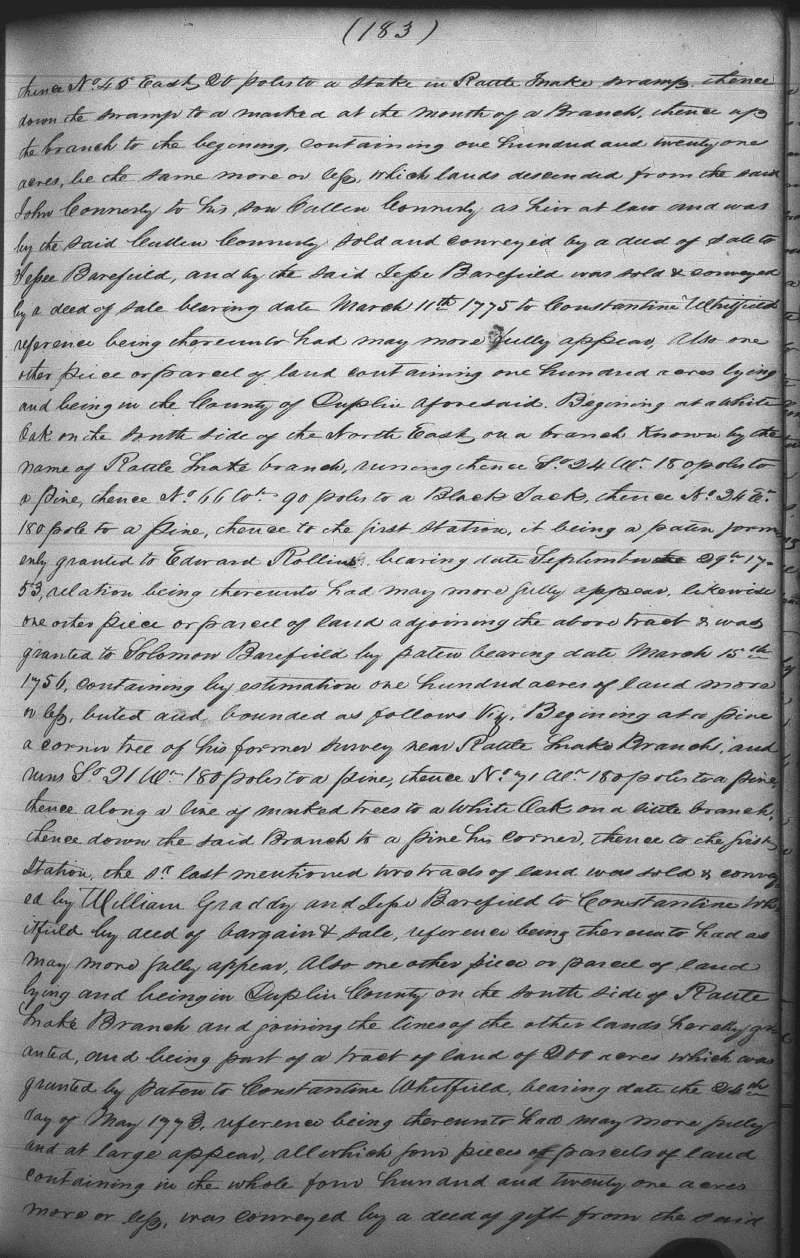 (183)
thence No. 45 East, 20 poles to a stake in Rattle Snake swamp, thence
down the swamp to a marked at the mouth of a Branch, thence up
the branch to the begining, containing one hundred and twenty one
acres, be the same more or less, which lands descended from the said
John Connerly to his son Cullen Connerly as heir at law and was
by the said Cullen Connerly sold and conveyed by a deed of sale to
Jesse Barefield, and by the said Jesse Barefield was sold & conveyed
by a deed of sale bearing date March 11th 1775 to Constantine Whitfield
reference being thereunto had may more fully appear, Also one
other piece or parcel of land containing one hundred acres lying
and being in the County of Duplin aforesaid. Begining at a White
Oak on the south side of the North East, on a branch Known by the
name of Rattle Snake branch, running thence So. 24 Wt. 180 poles to
a pine, thence No. 66 Wt. 90 poles to a Black Jack, thence No. 24 Et.
180 pole to a pine, thence to the first station, it being a paten form
erly granted to Edward Rollins, bearing date September 29th 17-
53, relation being thereunto had may more fully appear, likewise
one other piece or parcel of land adjoining the above tract & was
granted to Solomon Barefield by paten bearing date March 15th
1756, containing by estimation one hundred acres of land more
or less, buted and bounded as follows Viz. Begining at a pine
a corner tree of his former survey near Rattle Snake Branch, and
runs So. 21 Wt. 180 poles to a pine, thence No. 71 Wt. 180 poles to a pine,
thence along a line of marked trees to a White Oak on a little branch,
thence down the said Branch to a pine his corner, thence to the first
Station, the sd. last mentioned two tracts of land was sold & convey
ed by William Graddy and Jesse Barefield to Constantine Wh
itfield by deed of bargain & sale, reference being thereunto had as
may more fully appear, Also one other piece or parcel of land
lying and being in Duplin County on the south side of Rattle
Snake Branch and joining the lines of the other lands hereby gr
anted, and being part of a tract of land of 200 acres which was
granted by paten to Constantine Whitfield, bearing date the 24th
day of May 1773, reference being thereunto had may more fully
and at large appear, all which four pieces of parcels of land
containing in the whole four hundred and twenty one acres
more or less, was conveyed by a deed of gift from the said